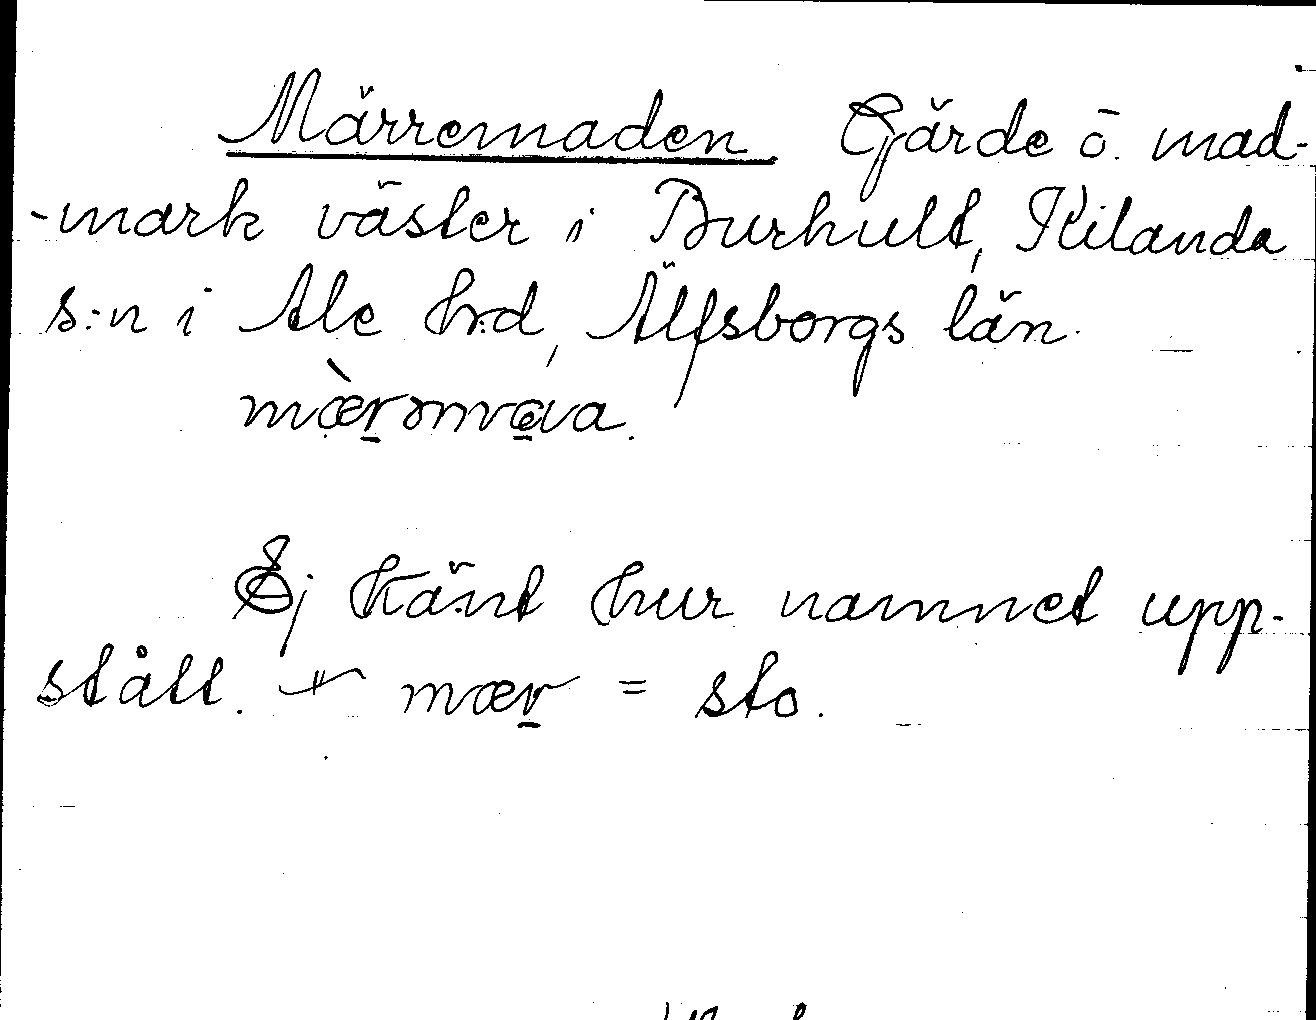 Märremaden Gärde ō. mad-
-mark väster i Burhult, Kilanda
s:n i Ale hrd, Älfsborgs län.
mær̲əmava.
Ej känt hur namnet upp-
stått. mær̲ = sto.